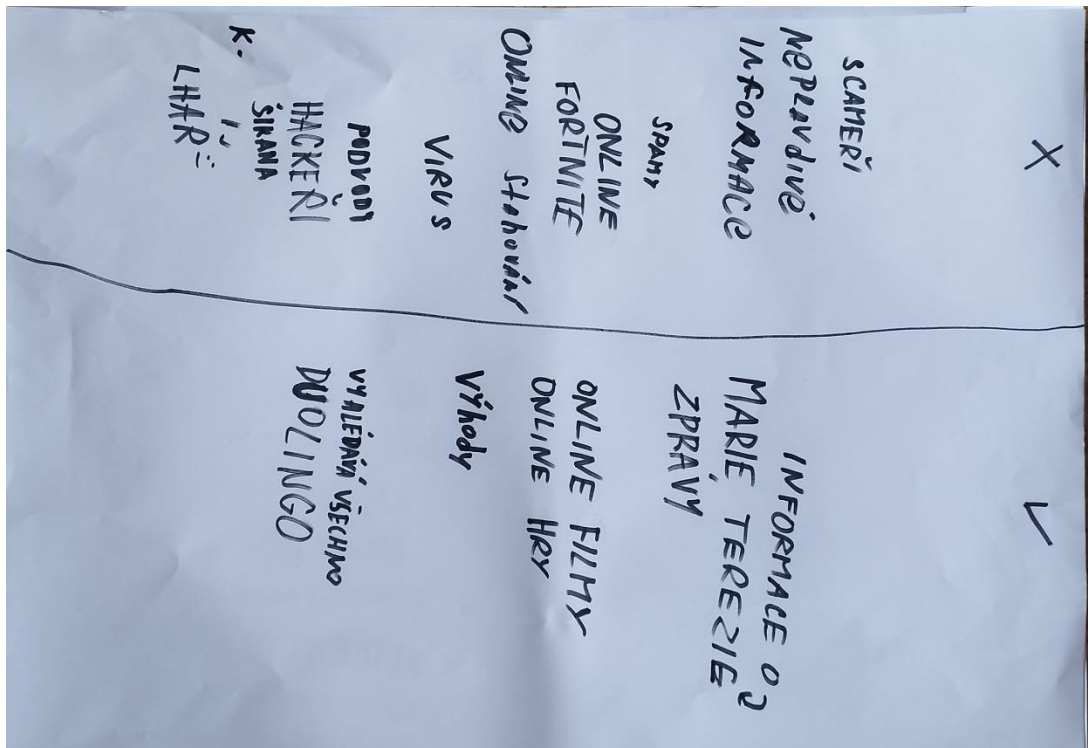 X
SCAMEŘI
NePRAVDIVÉ
INFORMACE
SPAMY
ONLINE
FORTNITE
ONLINE Stahování
VIRUS
PODVODY
HACKEŘI
ŠIKANA
K.
LHÁŘ
✓
INFORMACE O
MARIE TEREZIE
ZPRÁVY
ONLINE FILMY
ONLINE HRY
Výhody
VYHLÉDÁVÁ VŠECHNO
DUOLINGO